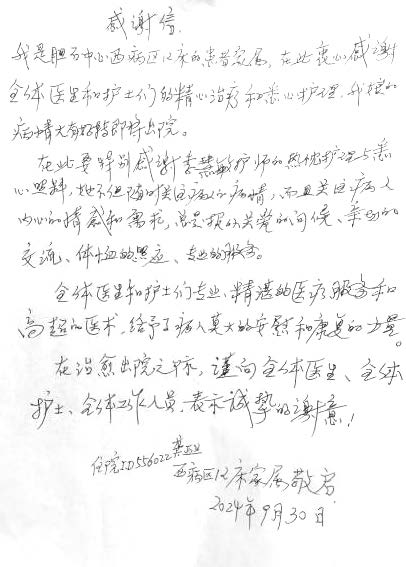 感谢信
我是胆石中心西病区12床的患者家属，在此衷心感谢
全体医生和护士们的精心治疗和悉心护理，我的
病情大有好转即将出院。
在此要特别感谢李慧敏护师的热忱护理与悉
心照料，她不但随时关注病人的病情，而且关注病人
内心的情感和需花，总是报以关爱的问候、亲切的
交流、体恤的照应、专业的服务。
全体医生和护士们专业、精湛的医疗服务和
高超的医术，给予了病人莫大的安慰和康复的力量。
在治愈出院之际，谨向全体医生、全体
护士、全体工作人员，表示诚挚的谢意！
住院ID556022
西病区12床家属敬启
2024年9月30日